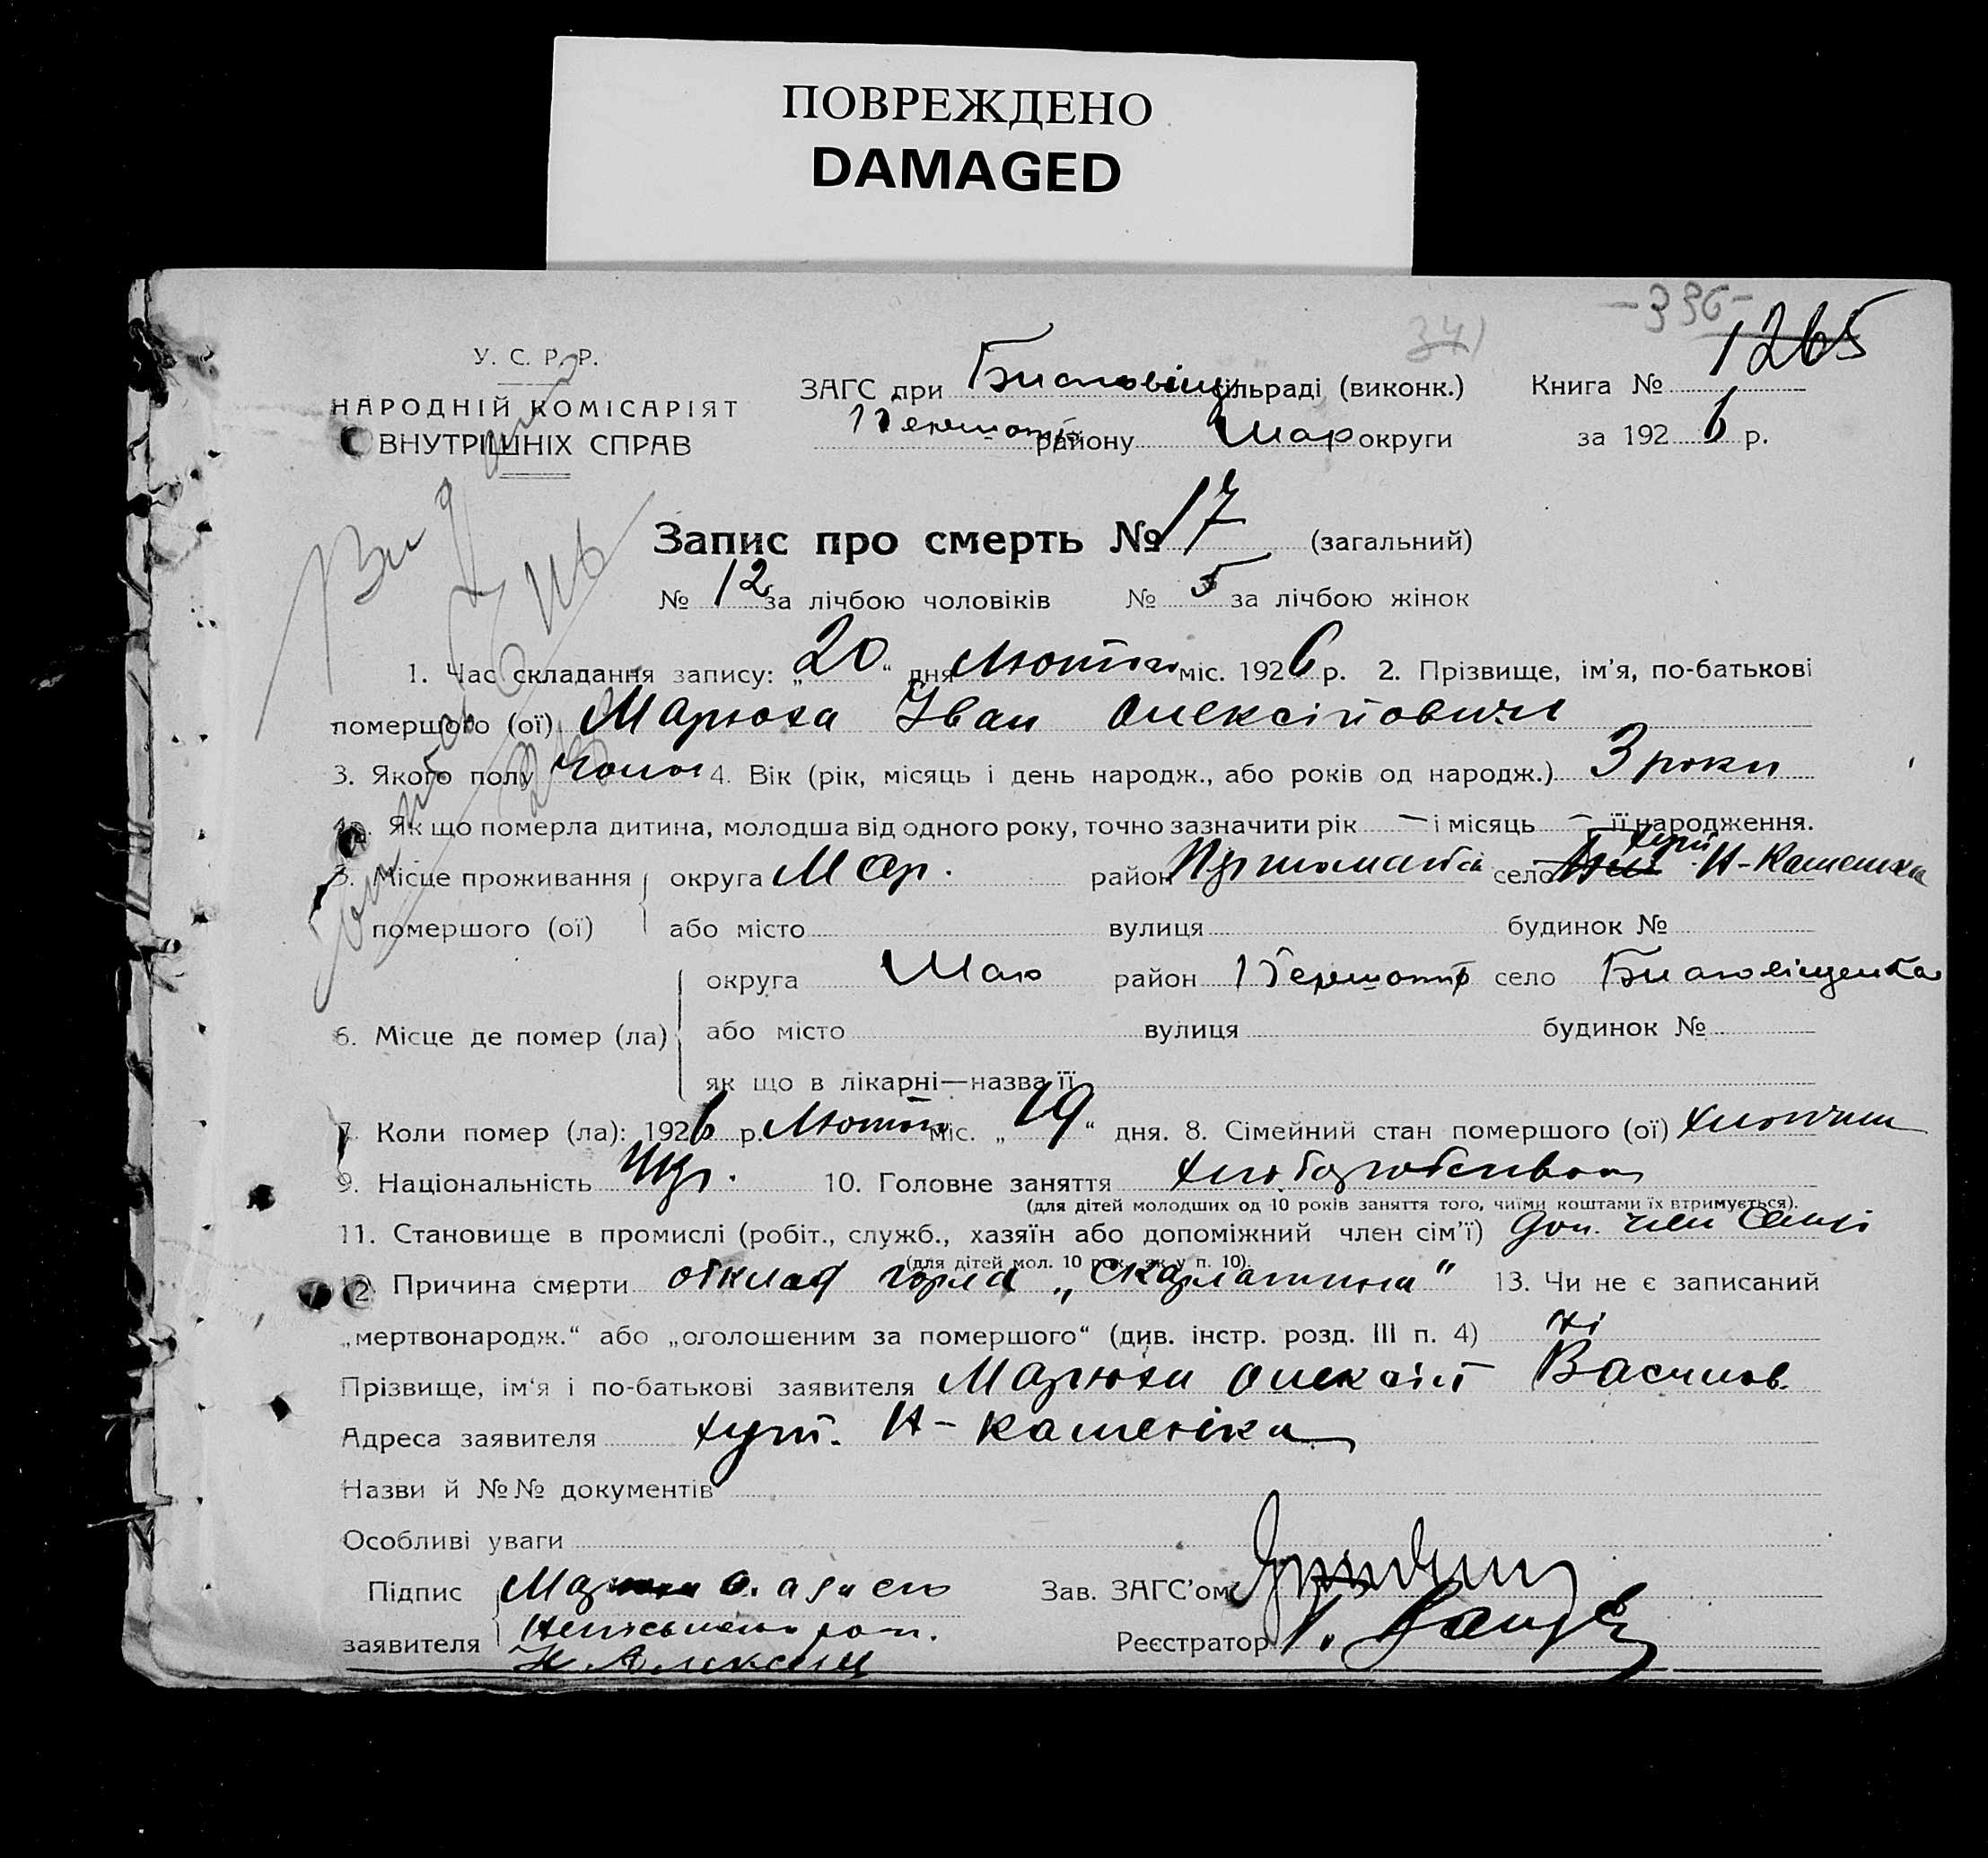 ПОВРЕЖДЕНО
DAMAGED
-336-
341
1265
У. С. Р. Р.
НАРОДНІЙ КОМІСАРІЯТ
ВНУТРІШНІХ СПРАВ
ЗАГС при сільраді (виконк.) Книга №
району Мар округи за 192 6 р.
Запис про смерть № 17 (загальний)
№ 12 за лічбою чоловіків № 5 за лічбою жінок
1. Час складання запису: „ 20 “ дня Лютого міс. 192 6 р. 2. Прізвище, ім'я, по-батькові
помершого (ої) Марюха Іван Олексійович
3. Якого полу Чолов 4. Вік (рік, місяць і день народж., або років од народж.) 3 роки
4а. Як що померла дитина, молодша від одного року, точно зазначити рік — і місяць — її народження.
5. Місце проживання округа Мар. район село хут. Н-Каменка
помершого (ої) або місто вулиця будинок №
округа Мар район село Благовіщенка
6. Місце де помер (ла) або місто вулиця будинок №
як що в лікарні—назва її
7. Коли помер (ла): 192 6 р. Лютого міс. „ 19 “ дня. 8. Сімейний стан помершого (ої) хлопчик
9. Національність Укр. 10. Головне заняття хліборобство
(для дітей молодших од 10 років заняття того, чиїми коштами їх втримується).
11. Становище в промислі (робіт., служб., хазяїн або допоміжний член сім'ї) доп. член семьі
(для дітей мол. 10 рок. як у п. 10).
12. Причина смерти обклад горла „Скарлатина“ 13. Чи не є записаний
„мертвонародж.“ або „оголошеним за помершого“ (див. інстр. розд. III п. 4) ні
Прізвище, ім'я і по-батькові заявителя Марюха Олексій Васильов.
Адреса заявителя хут. Н-Каменка
Назви й №№ документів
Особливі уваги
Підпис Зав. ЗАГС'ом
заявителя Реєстратор